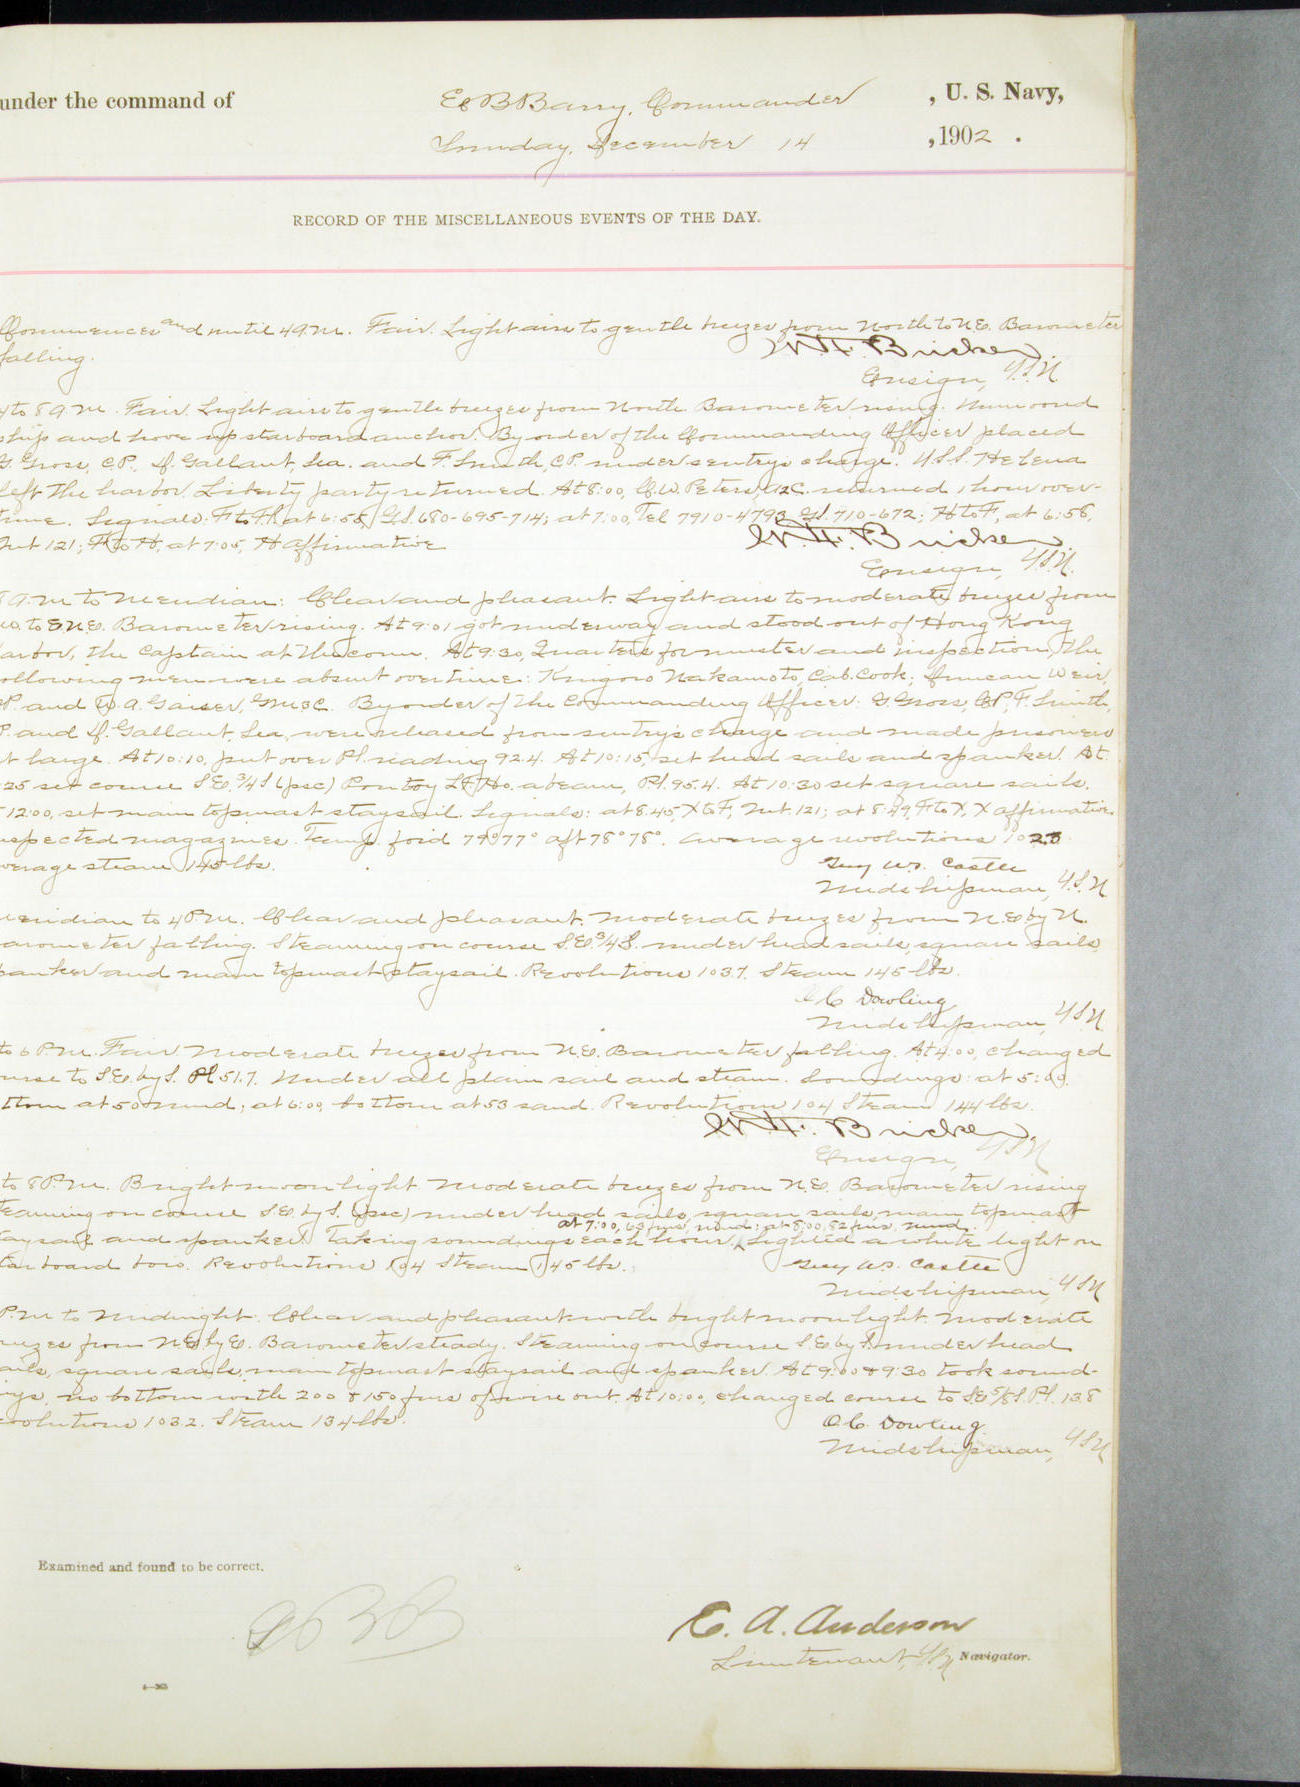 under the command of E B Barry, Commander , U. S. Navy,
Sunday, December 14 , 1902 .
RECORD OF THE MISCELLANEOUS EVENTS OF THE DAY.
Commences and until 4 A.M. Fair. Light airs to gentle breezes from North to N.E. Barometer
falling.
W. F. Bricker
Ensign, U.S.N.
4 to 8 A.M. Fair. Light airs to gentle breezes from North. Barometer rising. Unmoored
ship and hove up starboard anchor. By order of the Commanding Officer placed
G. Gross, C.P., D. Gallant, Sea. and F. Smith, C.P. under sentry's charge. U.S.S. Helena
left the harbor. Liberty party returned. At 8:00, C.W. Peters, returned 1 hour over-
time. Signals: at 6:55, G.S. 680-695-714; at 7:00, Tel 7910-4793 G.S. 710-672; H to F, at 6:58,
Int 121; F to H, at 7:05, H affirmative
W. F. Bricker
Ensign, U.S.N.
8 A.M. to Meridian: Clear and pleasant. Light airs to moderate breezes from
to E.N.E. Barometer rising. At 9:01 got underway and stood out of Hong Kong
arbor, the Captain at the conn. At 9:30, Quarters for muster and inspection, the
ollowing men were absent overtime: Kingoro Nakamoto, Cab. Cook; Duncan Weir,
P. and W. A. Gaiser, GM3C. By order of the Commanding Officer: G. Gross, CP, F. Smith,
P. and D. Gallant, Sea, were released from sentry's charge and made prisoners
at large. At 10:10, put over Pl. reading 92.4. At 10:15, set head sails and spanker. At
:25 set course S.E. 3/4 S (psc) Pomtoy L.H. abeam, Pl. 95.4. At 10:30 set square sails.
12:00, set main topmast staysail. Signals: at 8:45, X to F, Int. 121; at 8:49, F to X, X affirmative.
nspected magazines. Temp. for'd 79° 77° aft 78° 78°. Average revolutions
verage steam 145 lbs.
Guy W. S. Castle
Midshipman, U.S.N
eridian to 4 P.M. Clear and pleasant. Moderate breezes from N.E by N.
arometer falling. Steaming on course S.E. 3/4 S. under head sails, square sails,
panker and main topmast staysail. Revolutions 103.7. Steam 145 lbs.
O C Dowling
Midshipman, U S N
to 6 P.M. Fair. Moderate breezes from N.E. Barometer falling. At 4:00, changed
urse to S.E. by S. Pl 51.7. Under all plain sail and steam. Soundings: at 5:00,
ttom at 50 mud; at 6:00, bottom at 53 sand. Revolutions 104 Steam 144 lbs.
W. F. Bricker
Ensign, U S N
to 8 P.M. Bright moonlight. Moderate breezes from N.E. Barometer rising
teaming on course S.E by S. (psc) under head sails, square sails, main topmast
at 7:00, 63 fms, mud; at 8:00, 82 fms. mud.
taysail and spanker. Taking soundings each hour. Lighted a white light on
tarboard bow. Revolutions 104 Steam 145 lbs.
Guy W. S. Castle
Midshipman, U S N
P.M. to Midnight: Clear and pleasant with bright moonlight. Moderate
reezes from NE by E. Barometer steady. Steaming on course S.E by S. under head
ails, square sails, main topmast staysail and spanker. At 9:00 & 9:30 took sound-
ings, no bottom with 200 & 150 fms of wire out. At 10:00, changed course to S.E 5/8 S. Pl. 13.8
evolutions 103.2. Steam 134 lbs.
O. C. Dowling
Midshipman, U S N
Examined and found to be correct.
E B B
E. A. Anderson
Lieutenant, U S N Navigator.